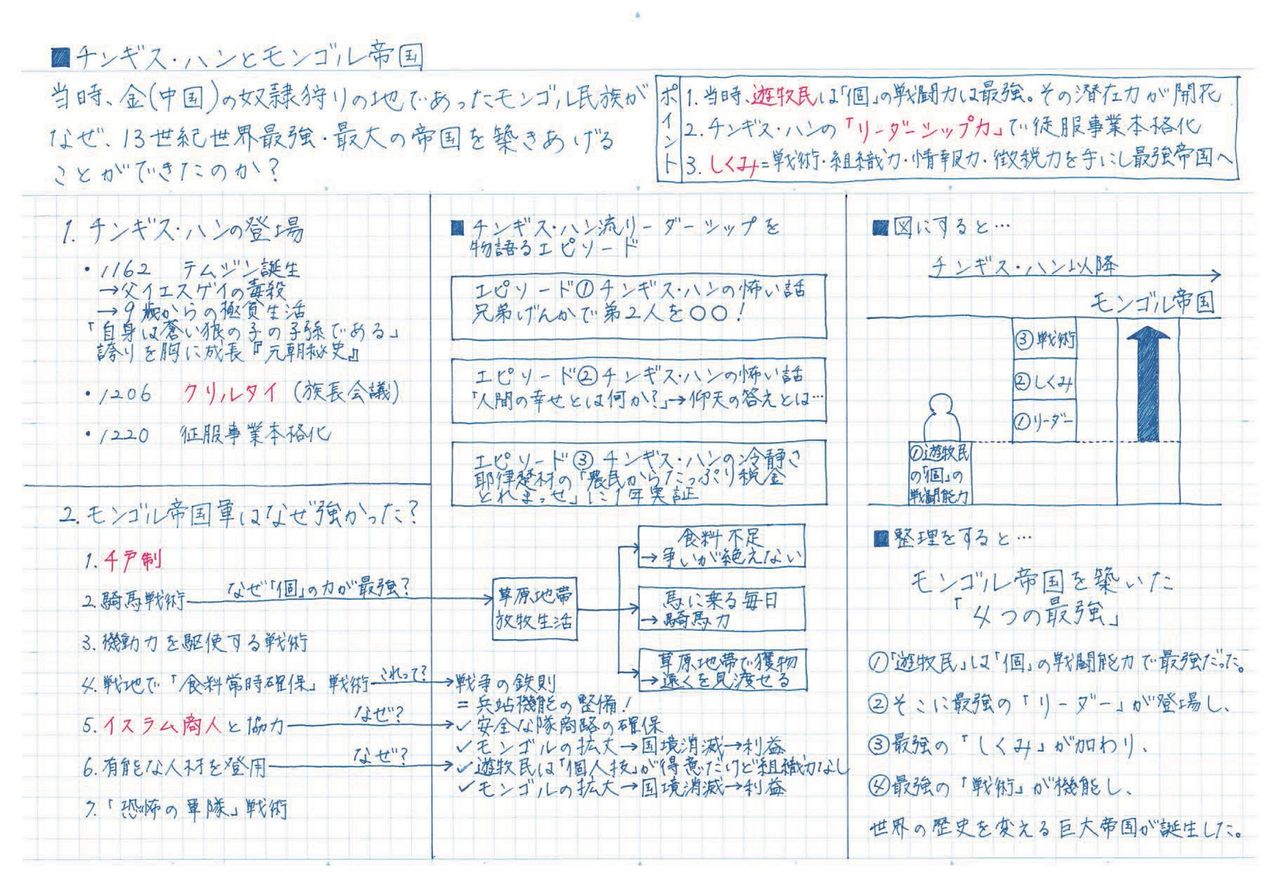 ■チンギス・ハンとモンゴル帝国
当時、金(中国)の奴隷狩りの地であったモンゴル民族が
なぜ、13世紀世界最強・最大の帝国を築きあげる
ことができたのか?
ポイント
1. 当時、遊牧民は「個」の戦闘力は最強。その潜在力が開花
2. チンギス・ハンの「リーダーシップ力」で征服事業本格化
3. しくみ=戦術・組織力・情報力・徴税力を手にし最強帝国へ
1. チンギス・ハンの登場
・1162 テムジン誕生
→父イエスゲイの毒殺
→9歳からの極貧生活
「自身は蒼い狼の子の子孫である」
誇りを胸に成長『元朝秘史』
・1206 クリルタイ(族長会議)
・1220 征服事業本格化
2. モンゴル帝国軍はなぜ強かった?
1. 千戸制
2. 騎馬戦術
なぜ「個」の力が最強?
3. 機動力を駆使する戦術
4. 戦地で「食料常時確保」戦術
これって?
5. イスラム商人と協力
なぜ?
6. 有能な人材を登用
なぜ?
7. 「恐怖の軍隊」戦術
■チンギス・ハン流リーダーシップを
物語るエピソード
エピソード①チンギス・ハンの怖い話
兄弟げんかで弟2人を○○!
エピソード②チンギス・ハンの怖い話
「人間の幸せとは何か?」→仰天の答えとは…
エピソード③チンギス・ハンの冷静さ
耶律楚材の「農民からたっぷり税金
とれまっせ」に1年実証
草原地帯
放牧生活
食料不足
→争いが絶えない
馬に乗る毎日
→騎馬力
草原地帯で獲物
→遠くを見渡せる
戦争の鉄則
=兵站機能の整備!
✓安全な隊商路の確保
✓モンゴルの拡大→国境消滅→利益
✓遊牧民は「個人技」が得意だけど組織力なし
✓モンゴルの拡大→国境消滅→利益
■図にすると…
チンギス・ハン以降
モンゴル帝国
③戦術
②しくみ
①リーダー
①遊牧民
の「個」の
戦闘能力
■整理をすると…
モンゴル帝国を築いた
「4つの最強」
①「遊牧民」は「個」の戦闘能力で最強だった。
②そこに最強の「リーダー」が登場し、
③最強の「しくみ」が加わり、
④最強の「戦術」が機能し、
世界の歴史を変える巨大帝国が誕生した。